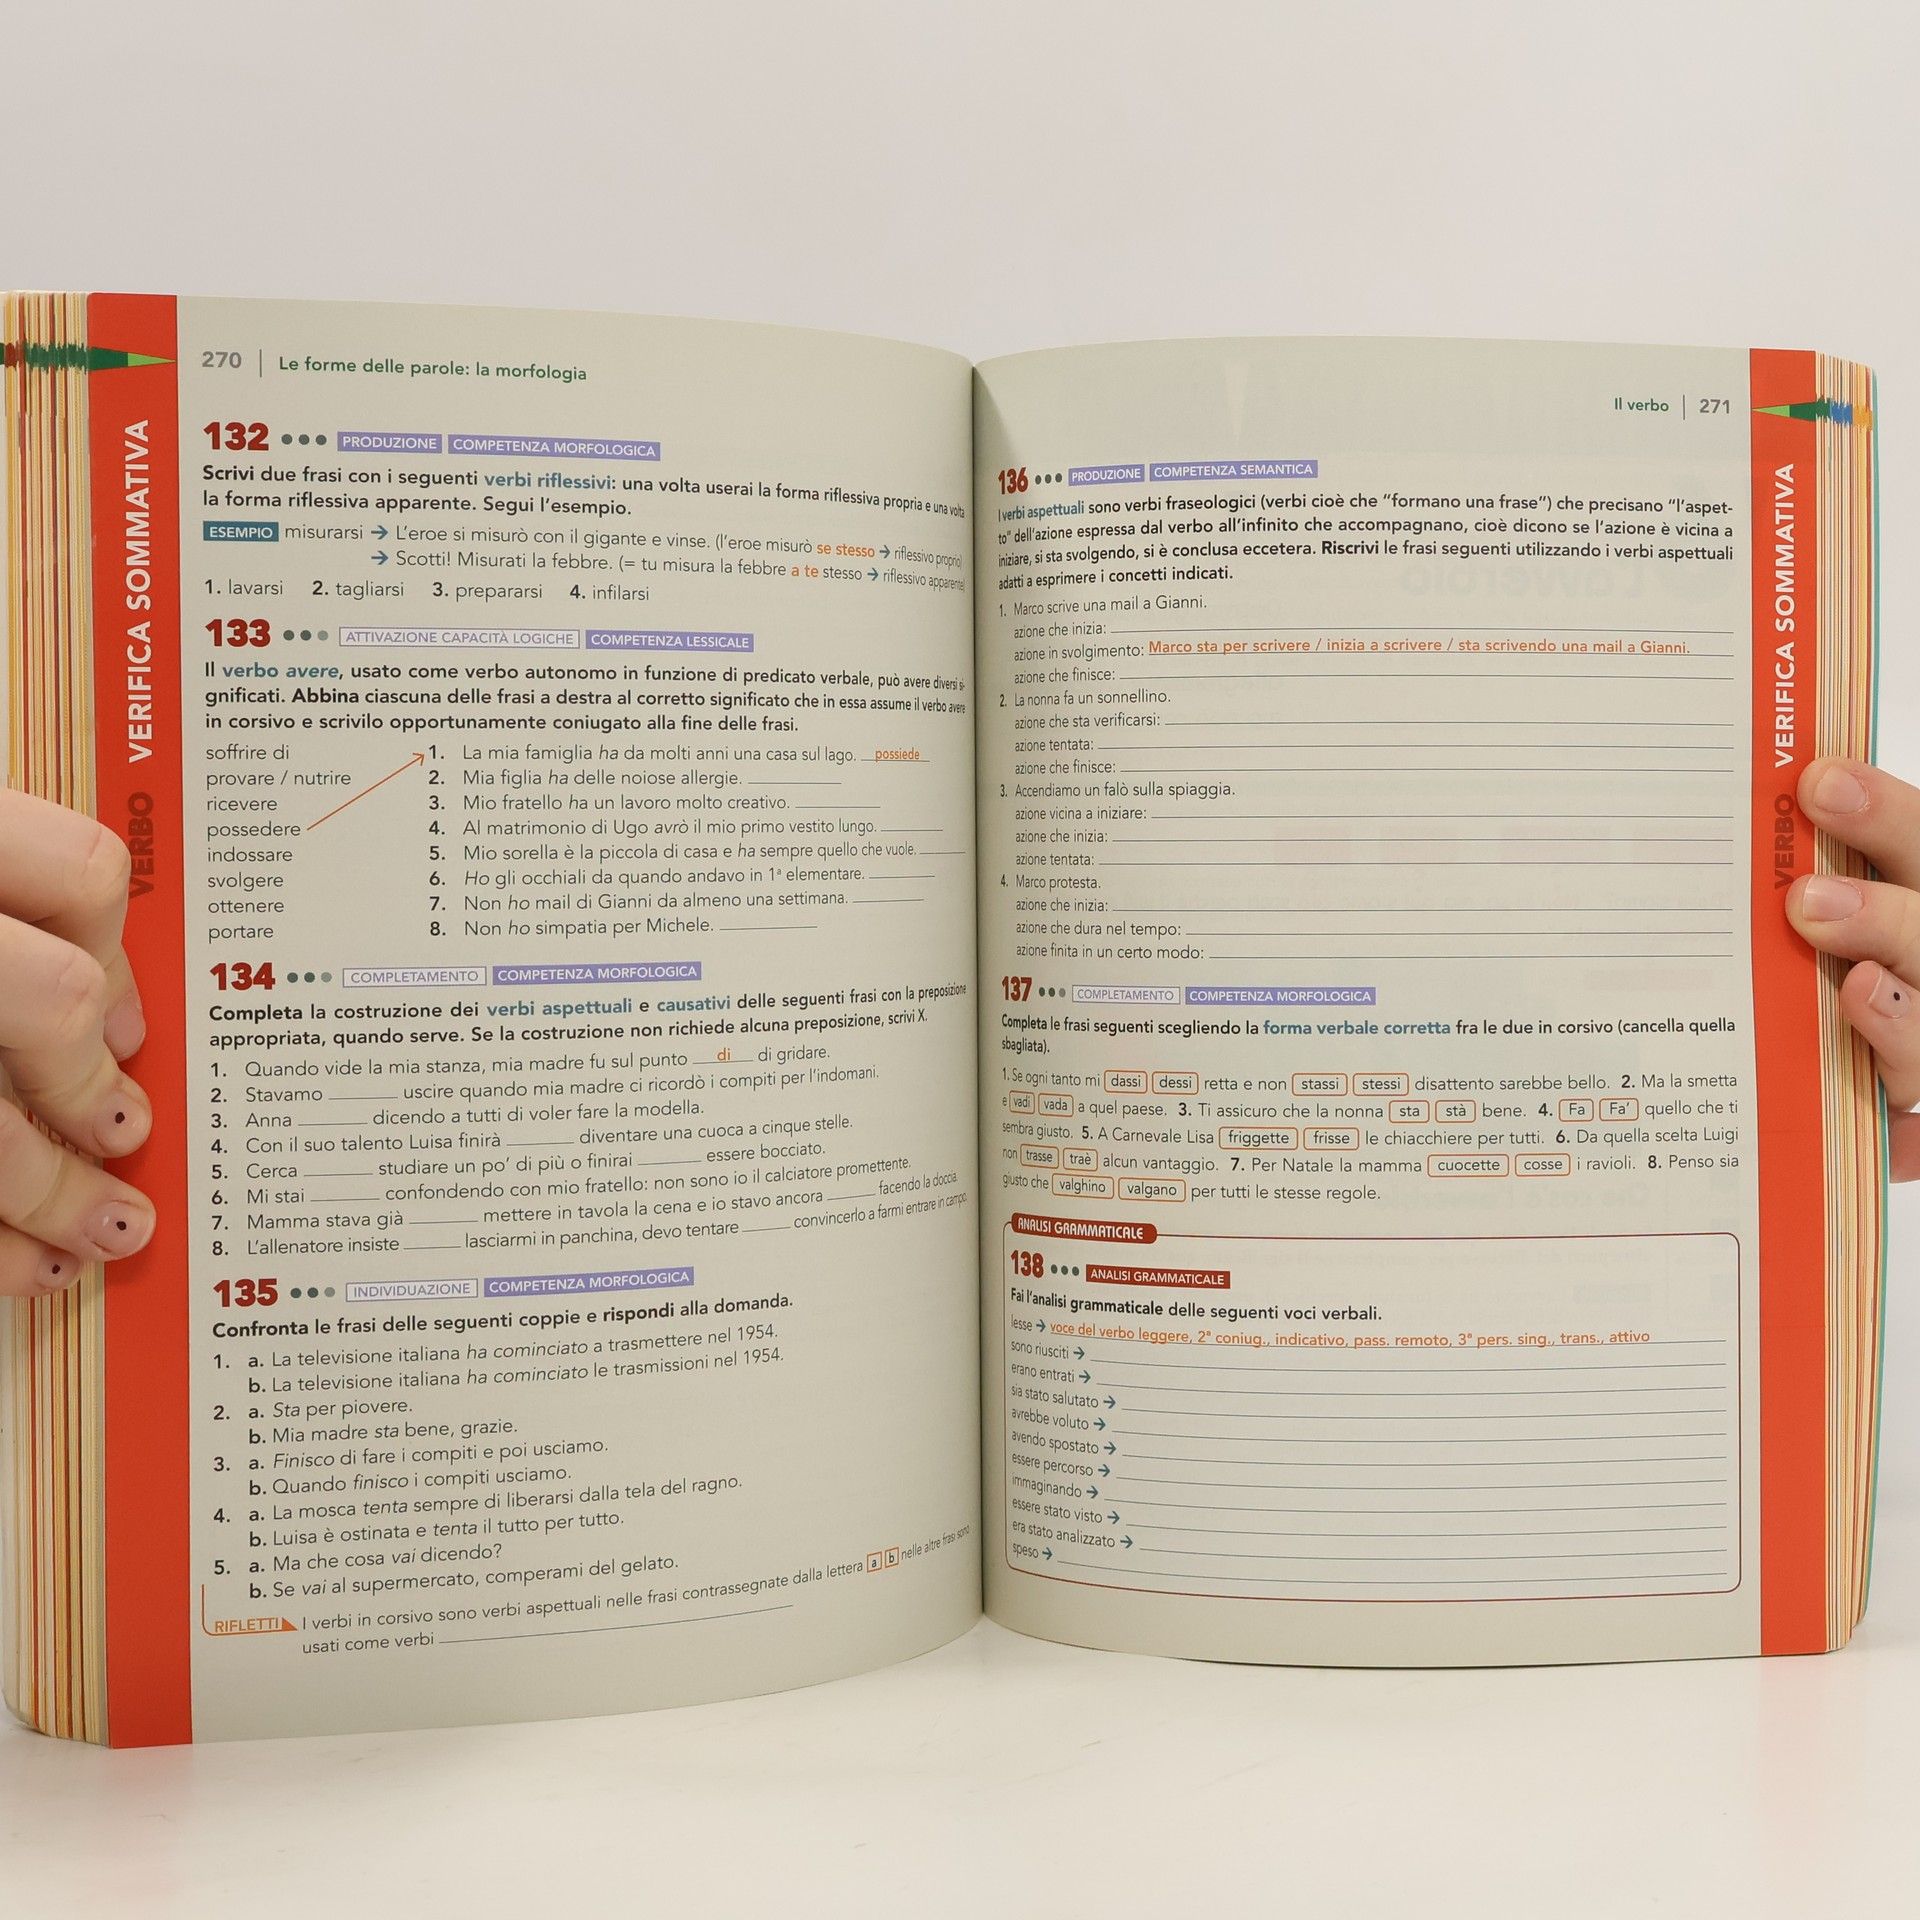 270 | Le forme delle parole: la morfologia
VERIFICA SOMMATIVA
VERBO
132 ••• PRODUZIONE COMPETENZA MORFOLOGICA
Scrivi due frasi con i seguenti verbi riflessivi: una volta userai la forma riflessiva propria e una volta
la forma riflessiva apparente. Segui l'esempio.
ESEMPIO misurarsi → L'eroe si misurò con il gigante e vinse. (l'eroe misurò se stesso → riflessivo proprio)
→ Scotti! Misurati la febbre. (= tu misura la febbre a te stesso → riflessivo apparente)
1. lavarsi 2. tagliarsi 3. prepararsi 4. infilarsi
133 ••• ATTIVAZIONE CAPACITÀ LOGICHE COMPETENZA LESSICALE
Il verbo avere, usato come verbo autonomo in funzione di predicato verbale, può avere diversi si-
gnificati. Abbina ciascuna delle frasi a destra al corretto significato che in essa assume il verbo avere
in corsivo e scrivilo opportunamente coniugato alla fine delle frasi.
soffrire di
provare / nutrire
ricevere
possedere
indossare
svolgere
ottenere
portare
1. La mia famiglia ha da molti anni una casa sul lago. possiede
2. Mia figlia ha delle noiose allergie. ____
3. Mio fratello ha un lavoro molto creativo. ____
4. Al matrimonio di Ugo avrò il mio primo vestito lungo. ____
5. Mio sorella è la piccola di casa e ha sempre quello che vuole. ____
6. Ho gli occhiali da quando andavo in 1ª elementare. ____
7. Non ho mail di Gianni da almeno una settimana. ____
8. Non ho simpatia per Michele. ____
134 ••• COMPLETAMENTO COMPETENZA MORFOLOGICA
Completa la costruzione dei verbi aspettuali e causativi delle seguenti frasi con la preposizione
appropriata, quando serve. Se la costruzione non richiede alcuna preposizione, scrivi X.
1. Quando vide la mia stanza, mia madre fu sul punto di di gridare.
2. Stavamo ____ uscire quando mia madre ci ricordò i compiti per l'indomani.
3. Anna ____ dicendo a tutti di voler fare la modella.
4. Con il suo talento Luisa finirà ____ diventare una cuoca a cinque stelle.
5. Cerca ____ studiare un po' di più o finirai ____ essere bocciato.
6. Mi stai ____ confondendo con mio fratello: non sono io il calciatore promettente.
7. Mamma stava già ____ mettere in tavola la cena e io stavo ancora ____ facendo la doccia.
8. L'allenatore insiste ____ lasciarmi in panchina, devo tentare ____ convincerlo a farmi entrare in campo.
135 ••• INDIVIDUAZIONE COMPETENZA MORFOLOGICA
Confronta le frasi delle seguenti coppie e rispondi alla domanda.
1. a. La televisione italiana ha cominciato a trasmettere nel 1954.
b. La televisione italiana ha cominciato le trasmissioni nel 1954.
2. a. Sta per piovere.
b. Mia madre sta bene, grazie.
3. a. Finisco di fare i compiti e poi usciamo.
b. Quando finisco i compiti usciamo.
4. a. La mosca tenta sempre di liberarsi dalla tela del ragno.
b. Luisa è ostinata e tenta il tutto per tutto.
5. a. Ma che cosa vai dicendo?
b. Se vai al supermercato, comperami del gelato.
RIFLETTI I verbi in corsivo sono verbi aspettuali nelle frasi contrassegnate dalla lettera a b nelle altre frasi sono
usati come verbi ____
Il verbo | 271
VERIFICA SOMMATIVA
VERBO
136 ••• PRODUZIONE COMPETENZA SEMANTICA
I verbi aspettuali sono verbi fraseologici (verbi cioè che "formano una frase") che precisano "l'aspet-
to" dell'azione espressa dal verbo all'infinito che accompagnano, cioè dicono se l'azione è vicina a
iniziare, si sta svolgendo, si è conclusa eccetera. Riscrivi le frasi seguenti utilizzando i verbi aspettuali
adatti a esprimere i concetti indicati.
1. Marco scrive una mail a Gianni.
azione che inizia: ____
azione in svolgimento: Marco sta per scrivere / inizia a scrivere / sta scrivendo una mail a Gianni.
azione che finisce: ____
2. La nonna fa un sonnellino.
azione che sta verificarsi: ____
azione tentata: ____
azione che finisce: ____
3. Accendiamo un falò sulla spiaggia.
azione vicina a iniziare: ____
azione che inizia: ____
azione tentata: ____
4. Marco protesta.
azione che inizia: ____
azione che dura nel tempo: ____
azione finita in un certo modo: ____
137 ••• COMPLETAMENTO COMPETENZA MORFOLOGICA
Completa le frasi seguenti scegliendo la forma verbale corretta fra le due in corsivo (cancella quella
sbagliata).
1. Se ogni tanto mi dassi dessi retta e non stassi stessi disattento sarebbe bello. 2. Ma la smetta
e vadi vada a quel paese. 3. Ti assicuro che la nonna sta stà bene. 4. Fa Fa' quello che ti
sembra giusto. 5. A Carnevale Lisa friggette frisse le chiacchiere per tutti. 6. Da quella scelta Luigi
non trasse traè alcun vantaggio. 7. Per Natale la mamma cuocette cosse i ravioli. 8. Penso sia
giusto che valghino valgano per tutti le stesse regole.
ANALISI GRAMMATICALE
138 ••• ANALISI GRAMMATICALE
Fai l'analisi grammaticale delle seguenti voci verbali.
lesse → voce del verbo leggere, 2ª coniug., indicativo, pass. remoto, 3ª pers. sing., trans., attivo
sono riusciti → ____
erano entrati → ____
sia stato salutato → ____
avrebbe voluto → ____
avendo spostato → ____
essere percorso → ____
immaginando → ____
essere stato visto → ____
era stato analizzato → ____
speso → ____